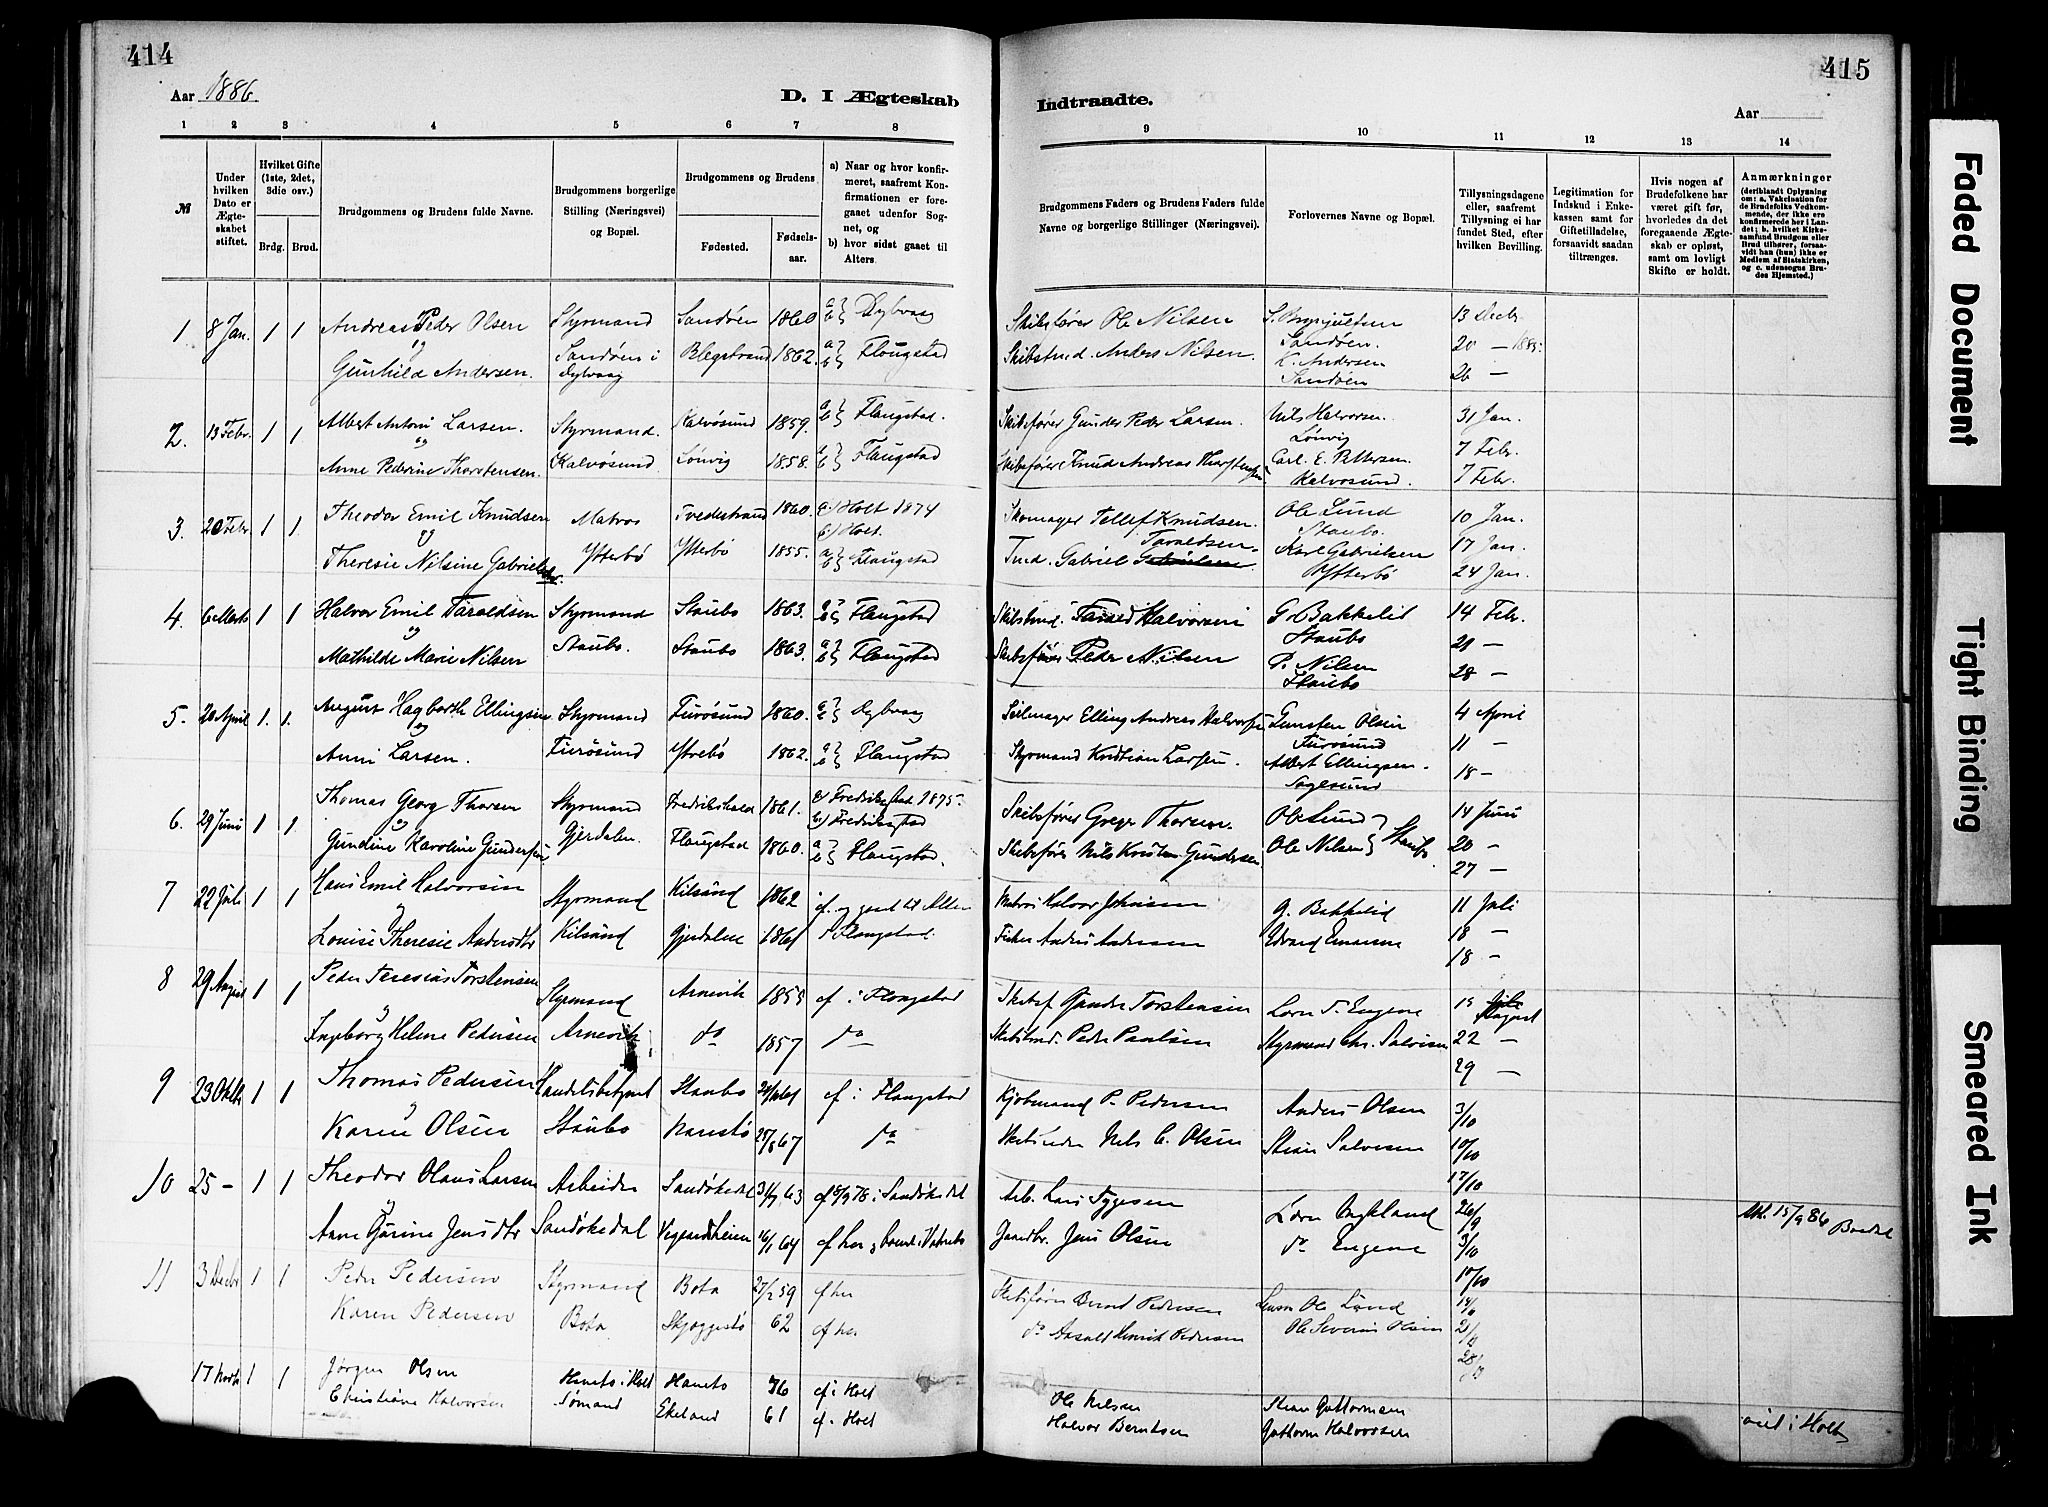 414
Aar 1886.
D. I Ægteskab
1 2 3 4 5 6 7 8
№
Under hvilken Dato er Ægteskabet stiftet.
Hvilket Gifte (1ste, 2det, 3die osv.)
Brdg. Brud.
Brudgommens og Brudens fulde Navne.
Brudgommens borgerlige Stilling (Næringsvei) og Bopæl.
Brudgommens og Brudens
Fødested.
Fødselsaar.
a) Naar og hvor konfirmeret, saafremt Konfirmationen er foregaaet udenfor Sognet, og
b) hvor sidst gaaet til Alters.
1. 8 Jan. 1 1 Andreas Peder Olsen Styrmand Sandøen 1860 a) b) Dybvaag
og
Gunhild Andersen. Sandøen i Dybvaag Blegestrand 1862. a) b) Flaugstad
2. 13 Febr. 1 1 Albert Antoni Larsen. Styrmand. Kalvøsund 1859. a) b) Flaugstad.
og
Anne Pederine Thorstensen. Kalvøsund Lönvig 1858. a) b) Flaugstad
3. 20 Febr. 1 1. Theodor Emil Knudsen Matros Tvedestrand 1860. a) Holt 1874
og b) Holt.
Theresie Nilsine Gabrielsdtr. Ytterbö Ytterbö 1855. a) b) Flaugstad
4. 6 Marts 1 1. Halvor Emil Taraldsen Styrmand Staubo 1863. a) b) Flaugstad
og
Mathilde Marie Nilsen Staubo. Staubo 1863. a) b) Flaugstad
5. 20 April 1. 1. August Hagbarth Ellingsen Styrmand Furösund 1860. a) b) Dybvaag
og
Anni Larsen. Furösund Ytrebö 1862. a) b) Flaugstad
6. 29 Juni 1 1. Thomas Georg Thorsen Styrmand Fredrikshald 1861. a) Fredrikstad 1875.
og b) Fredrikstad
Gundine Karoline Gundersen Gjerdalen. Flaugstad 1860. a) b) Flaugstad.
7 22 Juli 1 1 Hans Emil Halvorsen Styrmand Kilsund 1862 cf. og gaaet til Alters
Louise Theresie Andersdtr Kilsund Gjerdalen 1861 i Flaugstad.
8 29 August 1 1 Peder Teresias Torstensen Styrmand Arnevik 1855 cf i Flaugstad
Ingeborg Helene Pedersen Arnevik do 1857 do
9 23 Oktbr 1 1 Thomas Pedersen Handelsbetjent Staubo cf i Flaugstad
Karen Olsen Staubo Narestö 25/8 67 do
10 25 – 1 1 Theodor Olaus Larsen Arbeider Sandökedal 31/7 63 cf i Sandökedal
Anne Gurine Jensdtr Sandökedal Vegaardsheien 16/1 64 cf her
11 3 Decbr 1 1 Peder Pedersen Styrmand Bota 27/2 59 cf her
Karen Pedersen Bota Skjæggestö 62 cf her
17 1 1 Jørgen Olsen i Holt 36 cf i Holt
Christiane Halvorsen Sømand Ekeland 61 cf. i Holt
415
Indtraadte.
Aar
9 10 11 12 13 14
Brudgommens Faders og Brudens Faders fulde Navne og borgerlige Stillinger (Næringsvei).
Forlovernes Navne og Bopæl.
Tillysningsdagene eller, saafremt Tillysning ei har fundet Sted, efter hvilken Bevilling.
Legitimation for Indskud i Enkekassen samt for Giftetilladelse, forsaavidt saadan tiltrænges.
Hvis nogen af Brudefolkene har været gift før, hvorledes da det foregaaende Ægteskab er opløst, samt om lovligt Skifte er holdt.
Anmærkninger (deriblandt Oplysning om: a. Vakcination for de Brudefolks Vedkommende, der ikke ere konfirmerede her i Landet; b. hvilket Kirkesamfund Brudgom eller Brud tilhører, forsaavidt han (hun) ikke er Medlem af Statskirken, og c. udensogns Brudes Hjemsted.)
Skibsfører Ole Nilsen 13 Decbr.
Sandøen.
Skibstmd. Anders Nilsen. K. Andersen 20 — 1885.
Sandøen 26 —
Skibsfører Gunder Peder Larsen. Nils Halvorsen. 31 Jan.
Lönvig 7 Febr.
Skibsfører Knud Andreas Thorstensen Carl. E. Pettersen.
Kalvøsund. 7 Febr.
Skomager Tellef Knudsen. Ole Lund 10 Jan.
Staubo.
Tmd. Gabriel Taraldsen. Karl Gabrielsen 17 Jan.
Ytterbö 24 Jan.
Skibstmd. Tarald Halvorsen G. Bakkelid 14 Febr.
Staubo 21 —
Skibsfører Peder Nilsen P. Nilsen
Staubo 28 —
Seilmager Elling Andreas Halvorsen Gunsten Olsen 4 April
Furösund 11 —
Styrmand Kristian Larsen. Albert Ellingsen. 18 —
Sagesund
Skibsfører Greger Thorsen. Ole Lund 14 Juni
Staubo. 20 —
Skibsfører Nils Kristen Gundersen Ole Nilsen 27 —
Matros Halvor Johnsen G. Bakkelid 11 Juli
Fisker Anders Andersen Edvard 18 —
18 —
Skibsf. Gunder Torstensen Lærer T. Eugene 15 August
Skibstmd. Peder Paulsen Styrmand Chr. Salvesen 22 —
29 —
Kjöbmand P. Pedersen Anders Olsen 3/10
Nils C. Olsen Stian Salvesen 10/10
17/10
Arb. Lars Tygesen Lærer 26/9
Gaardbr. Jens Olsen do Eugene 3/10
10/10
15/9 86
Skibsfører Bernt Pedersen Lensm Ole Lund
do Henrik Pedersen Ole Severin Olsen
Ole Nilsen Stian Guttormsen
Halvor Berntsen Guttorm Halvorsen viet i Holt
Faded Document
Tight Binding
Smeared Ink